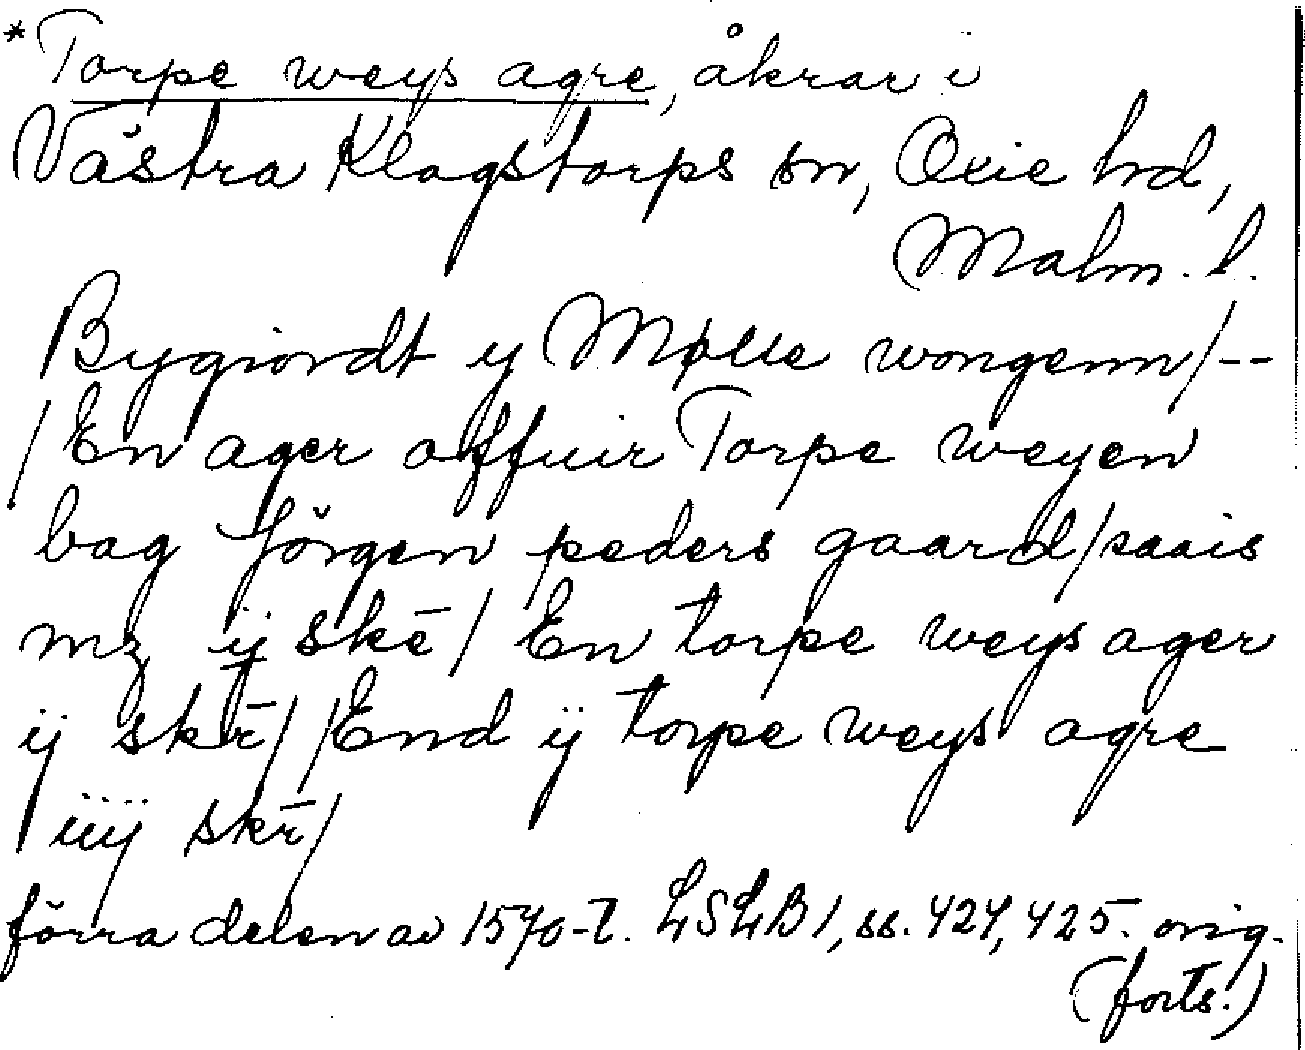 *Torpe weys agre, åkrar i
Västra Klagstorps sn, Oxie hd,
Malm. l.
Bygiordt y Mølle wongenn/--
/En ager offuir Torpe weyen
bag Jörgen peders gaard/saais
mz ij skē/ En torpe weys ager
ij skr̄/ /End ij torpe weys agre
iiij skr̄/
förra delen av 1570-t. LSLB 1, ss. 424, 425. orig.
(forts.)